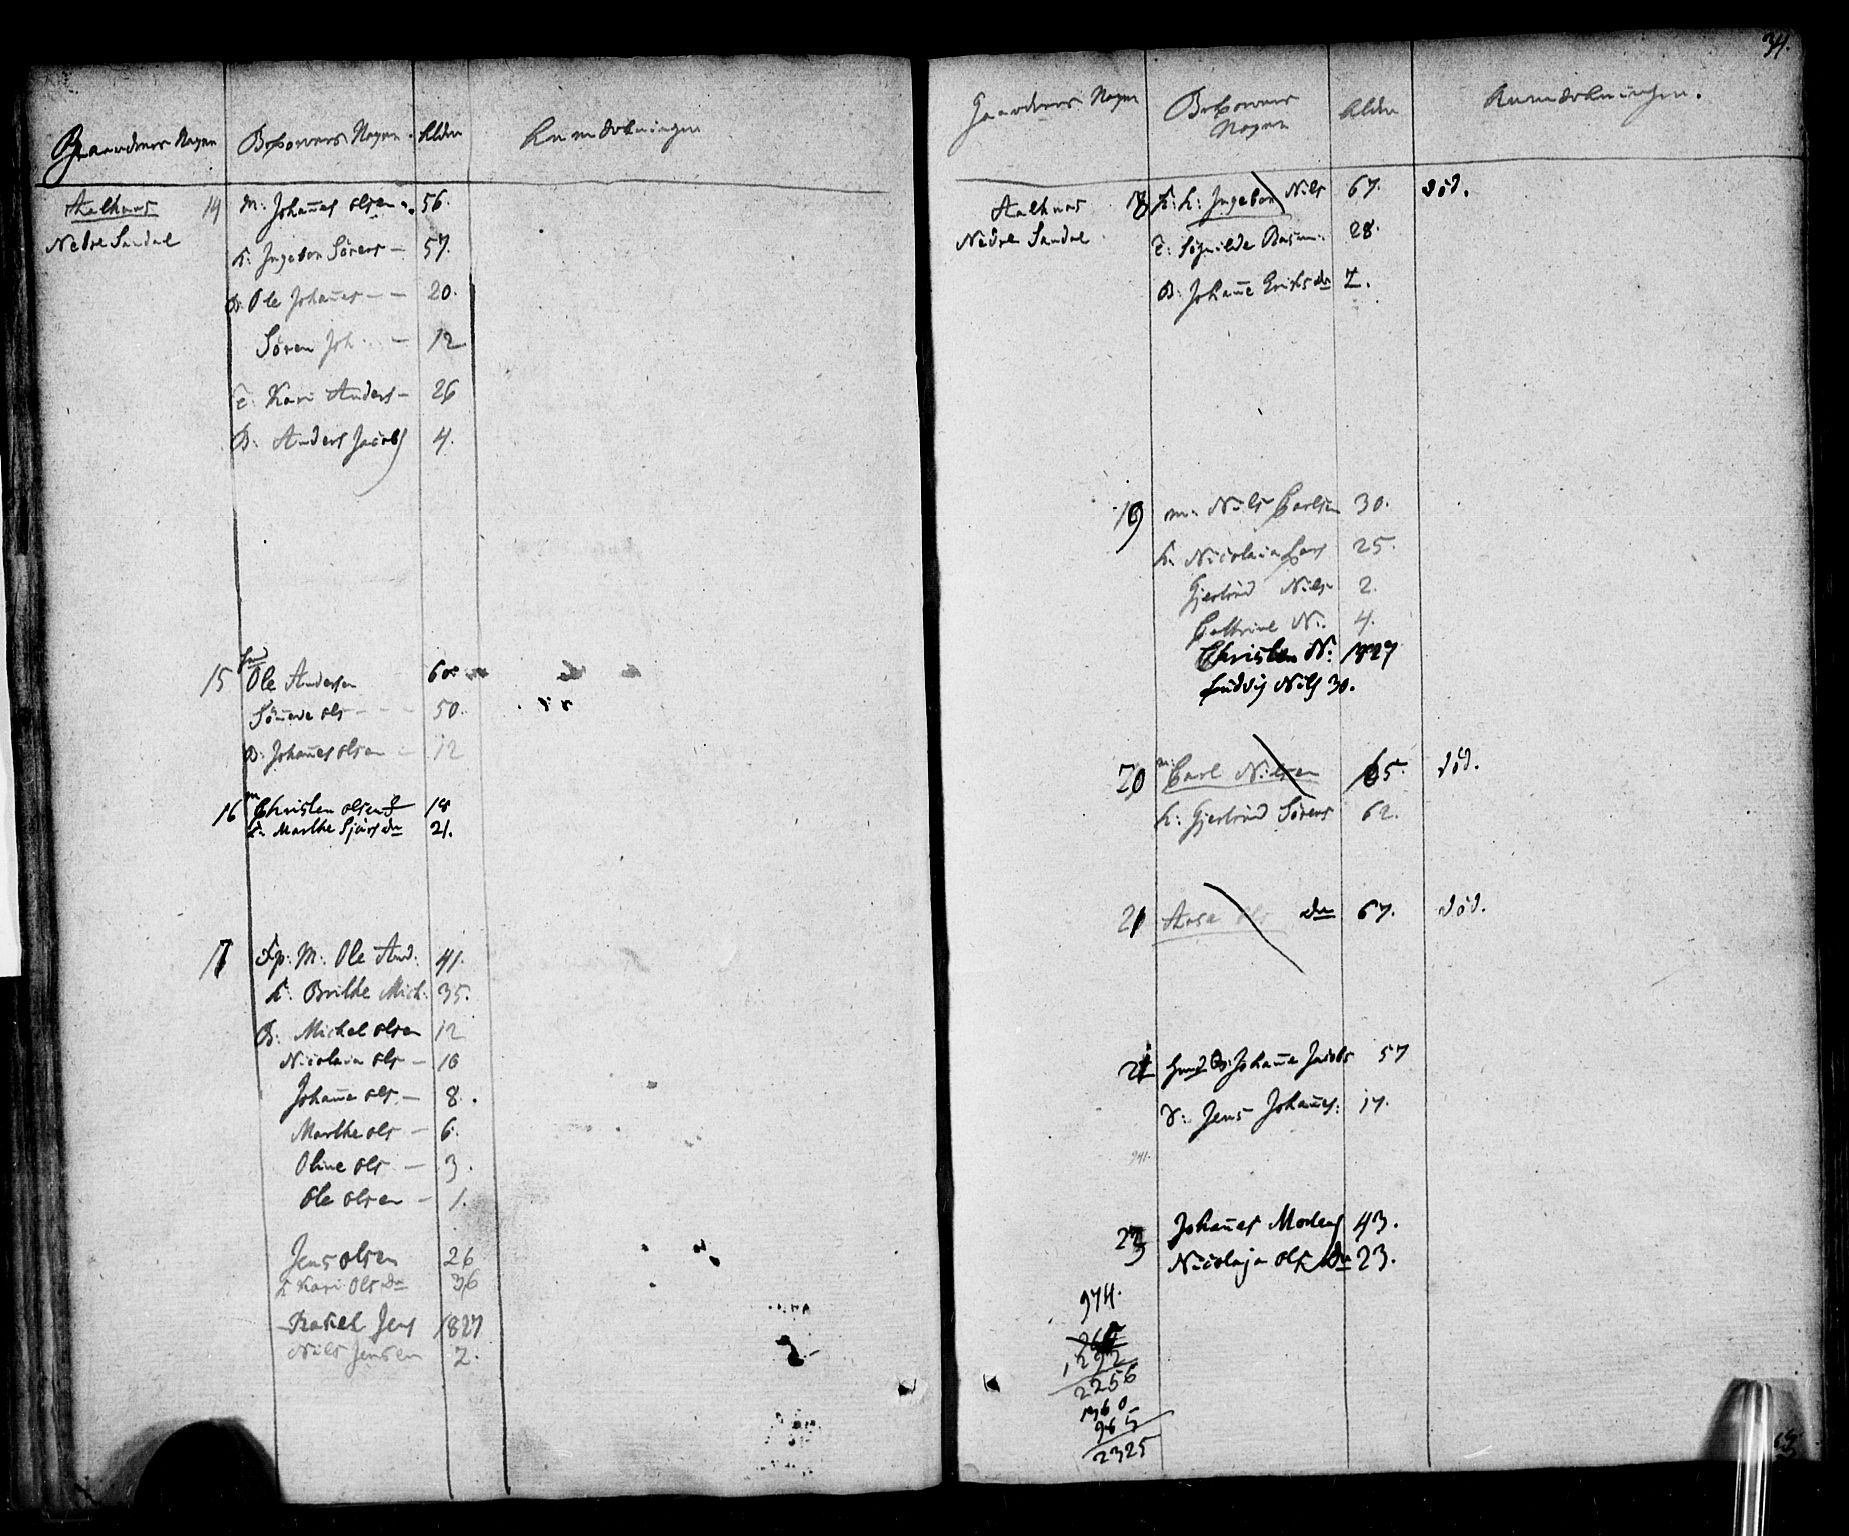 Gaardenes Nagen Beboernes Nagen. Alder Anmærkninger
Aalhuus 14 M: Johan̄es Olsen 56.
Nedre Sandal
K: Ingebor Sörens – 57.
B: Ole Johan̄es – – 20.
Sören Joh – 12
T: Kari Anders – 26
B: Anders Jacobs 4.
15 Ole Andersen 60
ols – – – 50.
B: Johan̄es Olsen – 12
16 m Christen Olsen 18
K: Marthe dr 21.
17 M: Ole And: 41.
K: Brithe Mich. 35.
B: Michel Olsen 12
Nicolaia Ols – 10
Johan̄e Ols – 8.
Marthe Ols – 6.
Oline Ols – 3.
Ole Olsen – 1.
Jens Olsen 26
K Kari Ols dr 36
Rasmus Jens 1827
Nils Jensen 2.
34.
Gaardenes Nagen Beboernes Nagen Alder Anmærkninger.
Aalhuus 18 K: Ingebor Nils 67. död.
Nedre Sandal
T: 28.
B: Johan̄e Eriks dr 7.
19 m: Nils Carlsen 30.
K. Nicolaia Lars 25.
Gjertrud Nils 2.
Cathrine N: 4.
Christen N: 1827
Ludvig Nils 30.
20 m: Carl Nilsen 65. död.
K: Gjertrud Sörens 62.
21 Aase Ols dr 67. död.
22 Johan̄e Jacobs 57
Jens Johan̄es: 17.
941.
23 Johan̄es Mons 43.
Nicolaja Ols dr 23.
974.
1292
2256
1360
965
2325